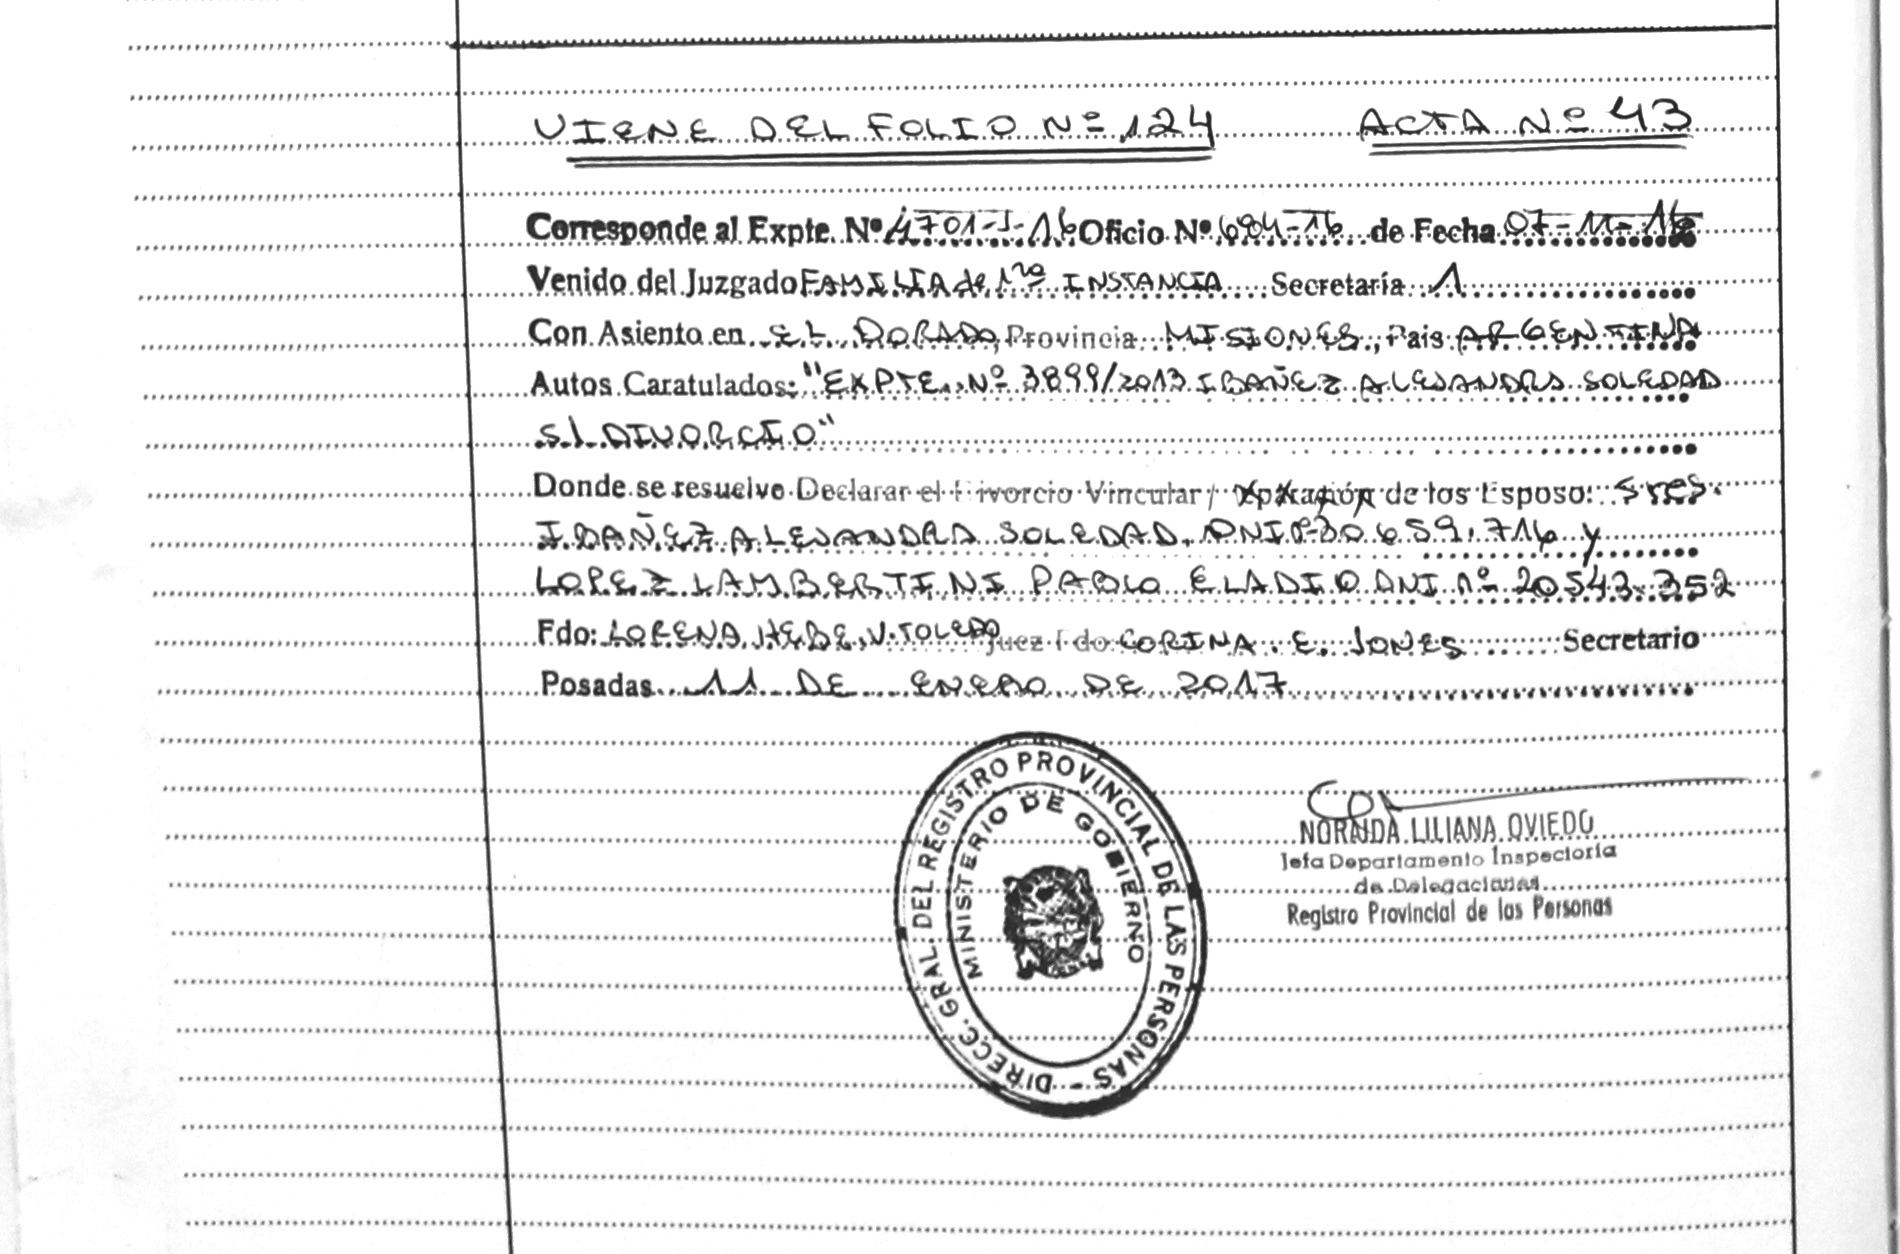 VIENE DEL FOLIO Nº 124 ACTA Nº 43
Corresponde al Expte. Nº 4701-J-16 Oficio Nº 684-16 de Fecha 07-11-16
Venido del Juzgado FAMILIA de 1ra INSTANCIA Secretaría 1
Con Asiento en EL DORADO, Provincia MISIONES, Pais ARGENTINA
Autos Caratulados: "EXPTE. Nº 3899/2013 IBAÑEZ ALEJANDRA SOLEDAD
S/ DIVORCIO"
Donde se resuelve Declarar el Divorcio Vincular / de los Esposo: sres.
IBAÑEZ ALEJANDRA SOLEDAD, DNI 30.659.716 y
LOPEZ LAMBERTINI PABLO ELADIO DNI nº 20543.352
Fdo: LORENA HEBE V. TOLEDO Juez Fdo CORINA E. JONES Secretario
Posadas 11 DE ENERO DE 2017
DIRECC. GRAL. DEL REGISTRO PROVINCIAL DE LAS PERSONAS -
MINISTERIO DE GOBIERNO
NORAIDA LILIANA OVIEDO
Jefa Departamento Inspectoría
de Delegaciones
Registro Provincial de las Personas